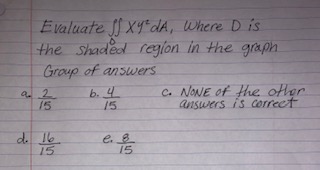 Evaluate ∬ xy² dA, Where D is
D
the shaded region in the graph
Group of answers
a. 2/15 b. 4/15 c. NONE of the other
answers is correct
d. 16/15 e. 8/15